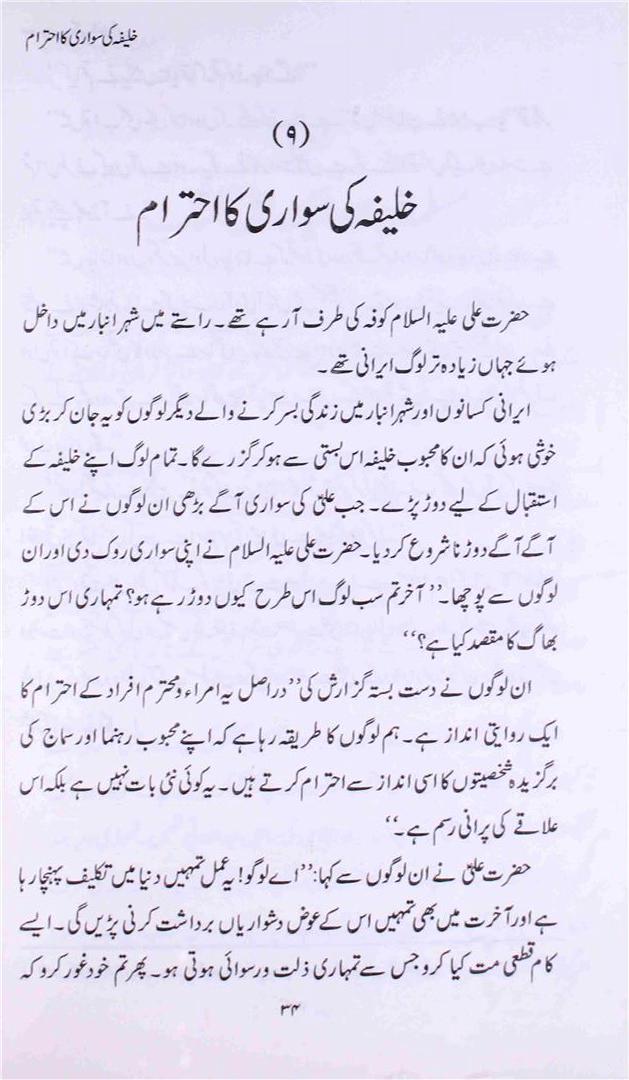 خلیفہ کی سواری کا احترام
(۹)
خلیفہ کی سواری کا احترام
حضرت علی علیہ السلام کوفہ کی طرف آ رہے تھے۔ راستے میں شہر انبار میں داخل
ہوئے جہاں زیادہ تر لوگ ایرانی تھے۔
ایرانی کسانوں اور شہر انبار میں زندگی بسر کرنے والے دیگر لوگوں کو یہ جان کر بڑی
خوشی ہوئی کہ ان کا محبوب خلیفہ اس بستی سے ہو کر گزرے گا۔ تمام لوگ اپنے خلیفہ کے
استقبال کے لیے دوڑ پڑے۔ جب علیؑ کی سواری آگے بڑھی ان لوگوں نے اس کے
آگے آگے دوڑنا شروع کر دیا۔ حضرت علی علیہ السلام نے اپنی سواری روک دی اور ان
لوگوں سے پوچھا۔ ’’آخر تم سب لوگ اس طرح کیوں دوڑ رہے ہو؟ تمہاری اس دوڑ
بھاگ کا مقصد کیا ہے؟‘‘
ان لوگوں نے دست بستہ گزارش کی ’’دراصل یہ امراء و محترم افراد کے احترام کا
ایک روایتی انداز ہے۔ ہم لوگوں کا طریقہ رہا ہے کہ اپنے محبوب رہنما اور سماج کی
برگزیدہ شخصیتوں کا اسی انداز سے احترام کرتے ہیں۔ یہ کوئی نئی بات نہیں ہے بلکہ اس
علاقے کی پرانی رسم ہے۔‘‘
حضرت علیؑ نے ان لوگوں سے کہا: ’’اے لوگو! یہ عمل تمہیں دنیا میں تکلیف پہنچا رہا
ہے اور آخرت میں بھی تمہیں اس کے عوض دشواریاں برداشت کرنی پڑیں گی۔ ایسے
کام قطعی مت کیا کرو جس سے تمہاری ذلت و رسوائی ہوتی ہو۔ پھر تم خود غور کرو کہ
۳۴